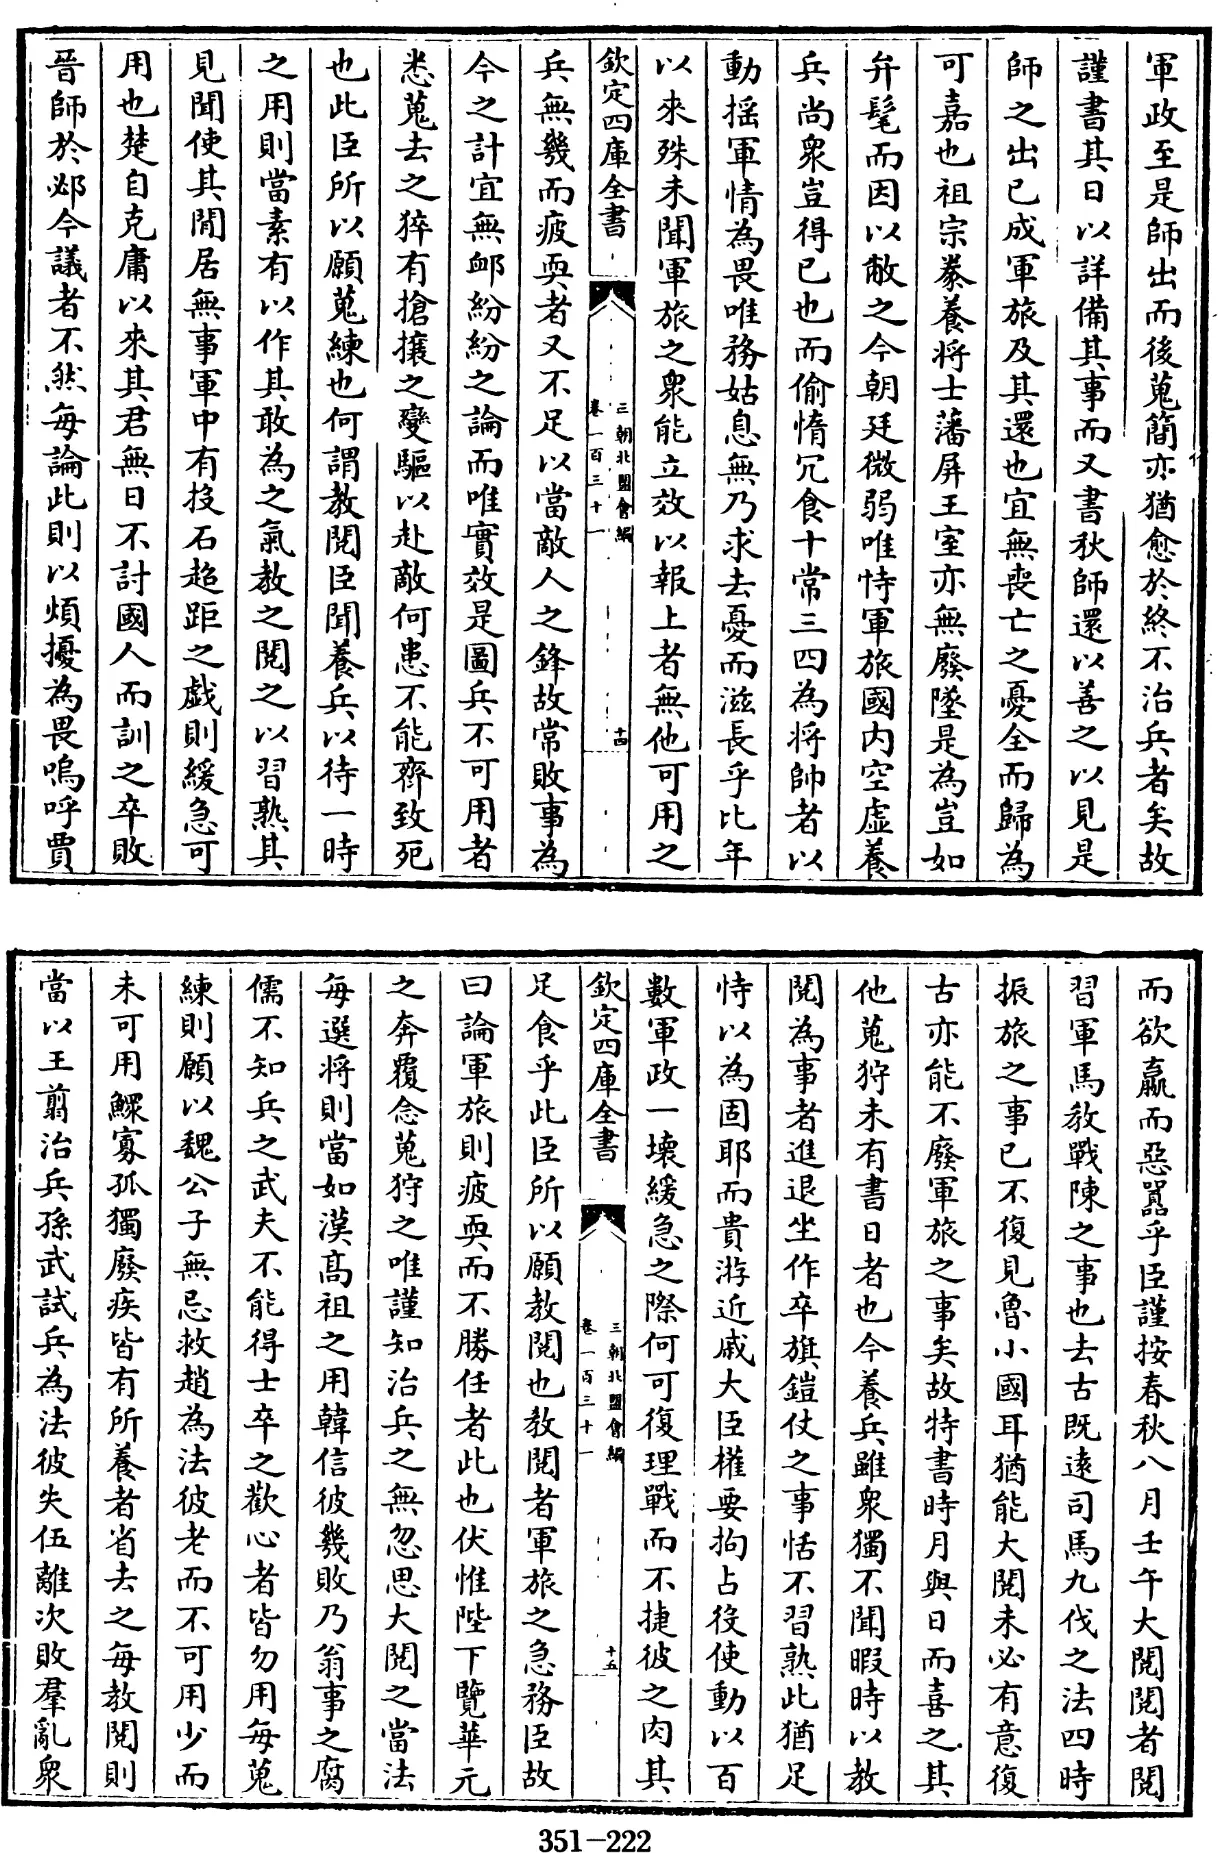 軍政至是師出而後蒐簡亦猶愈於終不治兵者矣故
謹書其日以詳備其事而又書秋師還以善之以見是
師之出已成軍旅及其還也宜無喪亡之憂全而歸為
可嘉也祖宗豢養將士藩屏王室亦無廢墜是為豈如
弁髦而因以敝之今朝廷微弱唯恃軍旅國内空虛養
兵尚衆豈得已也而偷惰冗食十常三四為將帥者以
動揺軍情為畏唯務姑息無乃求去憂而滋長乎比年
以來殊未聞軍旅之衆能立效以報上者無他可用之
欽定四庫全書
三朝北盟會編
卷一百三十一
十四
兵無幾而疲耎者又不足以當敵人之鋒故常敗事為
今之計宜無䘏紛紛之論而唯實效是圖兵不可用者
悉蒐去之猝有搶攘之變驅以赴敵何患不能齊致死
也此臣所以願蒐練也何謂教閲臣聞養兵以待一時
之用則當素有以作其敢為之氣教之閲之以習熟其
見聞使其閒居無事軍中有投石超距之戲則緩急可
用也楚自克庸以來其君無日不討國人而訓之卒敗
晉師於邲今議者不然每論此則以煩擾為畏嗚呼賈
而欲贏而惡囂乎臣謹按春秋八月壬午大閲閲者閲
習軍馬教戰陳之事也去古既逺司馬九伐之法四時
振旅之事已不復見魯小國耳猶能大閲未必有意復
古亦能不廢軍旅之事矣故特書時月與日而喜之其
他蒐狩未有書日者也今養兵雖衆獨不聞暇時以教
閲為事者進退坐作卒旗鎧仗之事恬不習熟此猶足
恃以為固耶而貴游近戚大臣權要拘占役使動以百
數軍政一壊緩急之際何可復理戰而不捷彼之肉其
欽定四庫全書
三朝北盟會編
卷一百三十一
十五
足食乎此臣所以願教閲也教閲者軍旅之急務臣故
曰論軍旅則疲耎而不勝任者此也伏惟陛下覽華元
之奔覆念蒐狩之唯謹知治兵之無忽思大閲之當法
每選將則當如漢髙祖之用韓信彼幾敗乃翁事之腐
儒不知兵之武夫不能得士卒之歡心者皆勿用每蒐
練則願以魏公子無忌救趙為法彼老而不可用少而
未可用鰥寡孤獨廢疾皆有所養者省去之每教閲則
當以王翦治兵孫武試兵為法彼失伍離次敗羣亂衆
351-222